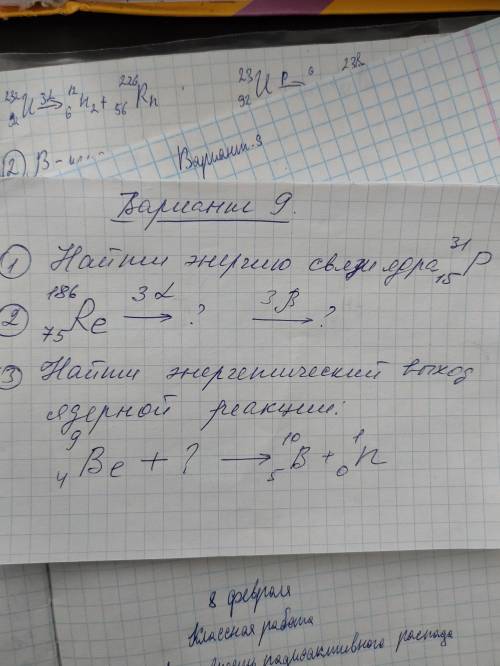 232 92 U 3α → 12 6 n 2 + 226 56 Rn
23 92 U 238
② B-
Вариант 9
Вариант 9.
① Найти энергию связи ядра 31 15 P
② 186 75 Re 3α → ? 3β → ?
③ Найти энергетический выход
ядерной реакции:
9 4 Be + ? → 10 5 B + 1 0 n
8 февраля
Классная работа
радиоактивного распада